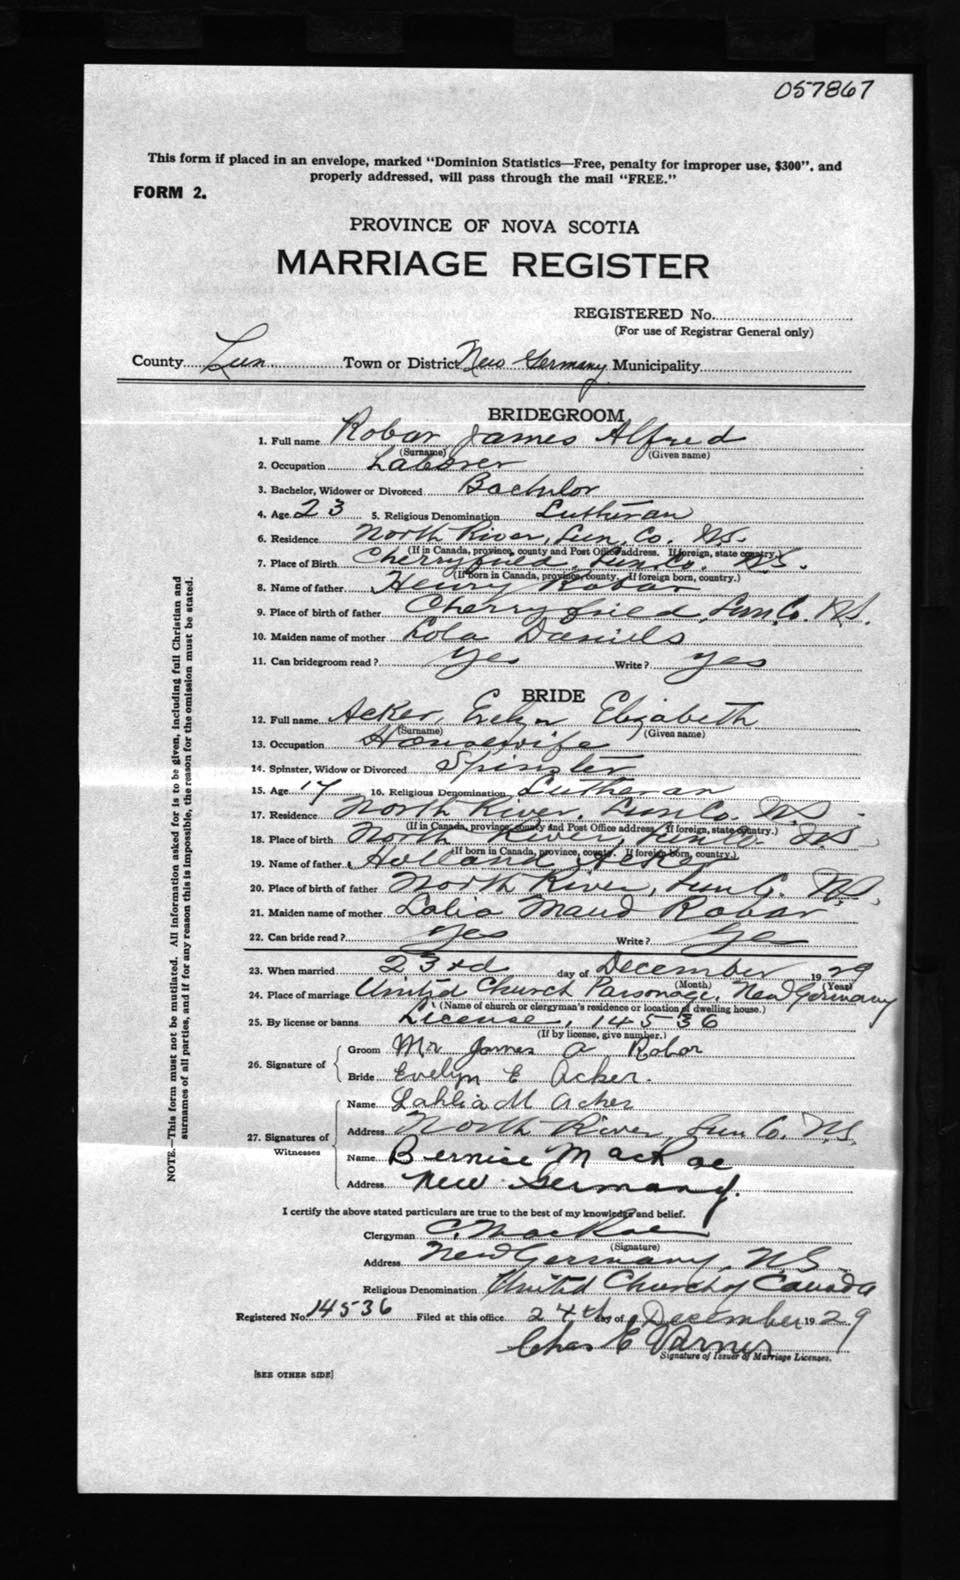 057867
This form if placed in an envelope, marked "Dominion Statistics—Free, penalty for improper use, $300", and
properly addressed, will pass through the mail "FREE."
FORM 2.
PROVINCE OF NOVA SCOTIA
MARRIAGE REGISTER
REGISTERED No.
(For use of Registrar General only)
County Lun Town or District New Germany Municipality
BRIDEGROOM
1. Full name Robar James Alfred
(Surname) (Given name)
2. Occupation Laborer
3. Bachelor, Widower or Divorced Bachelor
4. Age 23 5. Religious Denomination Lutheran
6. Residence North River, Lun. Co. N.S.
(If in Canada, province, county and Post Office address. If foreign, state country.)
7. Place of Birth Cherryfield, Lun. Co. N.S.
(If born in Canada, province, county. If foreign born, country.)
8. Name of father Henry Robar
9. Place of birth of father Cherryfield, Lun. Co. N.S.
10. Maiden name of mother Lola Daniels
11. Can bridegroom read? yes Write? yes
BRIDE
12. Full name Acker, Evelyn Elizabeth
(Surname) (Given name)
13. Occupation Housewife
14. Spinster, Widow or Divorced Spinster
15. Age 17 16. Religious Denomination Lutheran
17. Residence North River, Lun Co. N.S.
(If in Canada, province, county and Post Office address. If foreign, state country.)
18. Place of birth North River, Lun Co. N.S.
(If born in Canada, province, county. If foreign born, country.)
19. Name of father Holland Acker
20. Place of birth of father North River, Lun Co. N.S.
21. Maiden name of mother Lalia Maud Robar
22. Can bride read? yes Write? yes
23. When married 23rd day of December 1929
(Month) (Year)
24. Place of marriage United Church Parsonage, New Germany
(Name of church or clergyman's residence or location of dwelling house.)
25. By license or banns License, 14536
(If by license, give number.)
26. Signature of Groom Mr James A Robar
Bride Evelyn E Acker.
27. Signatures of Witnesses Name Lahlia M Acker
Address North River, Lun Co. N.S.
Name Bernice MacRae
Address New Germany.
I certify the above stated particulars are true to the best of my knowledge and belief.
Clergyman C. MacRae
(Signature)
Address New Germany, N.S.
Religious Denomination United Church of Canada
Registered No. 14536 Filed at this office 24th day of December 1929
Chas E Varner
Signature of Issuer of Marriage Licenses.
[SEE OTHER SIDE]
NOTE.—This form must not be mutilated. All information asked for is to be given, including full Christian and
surnames of all parties, and if for any reason this is impossible, the reason for the omission must be stated.